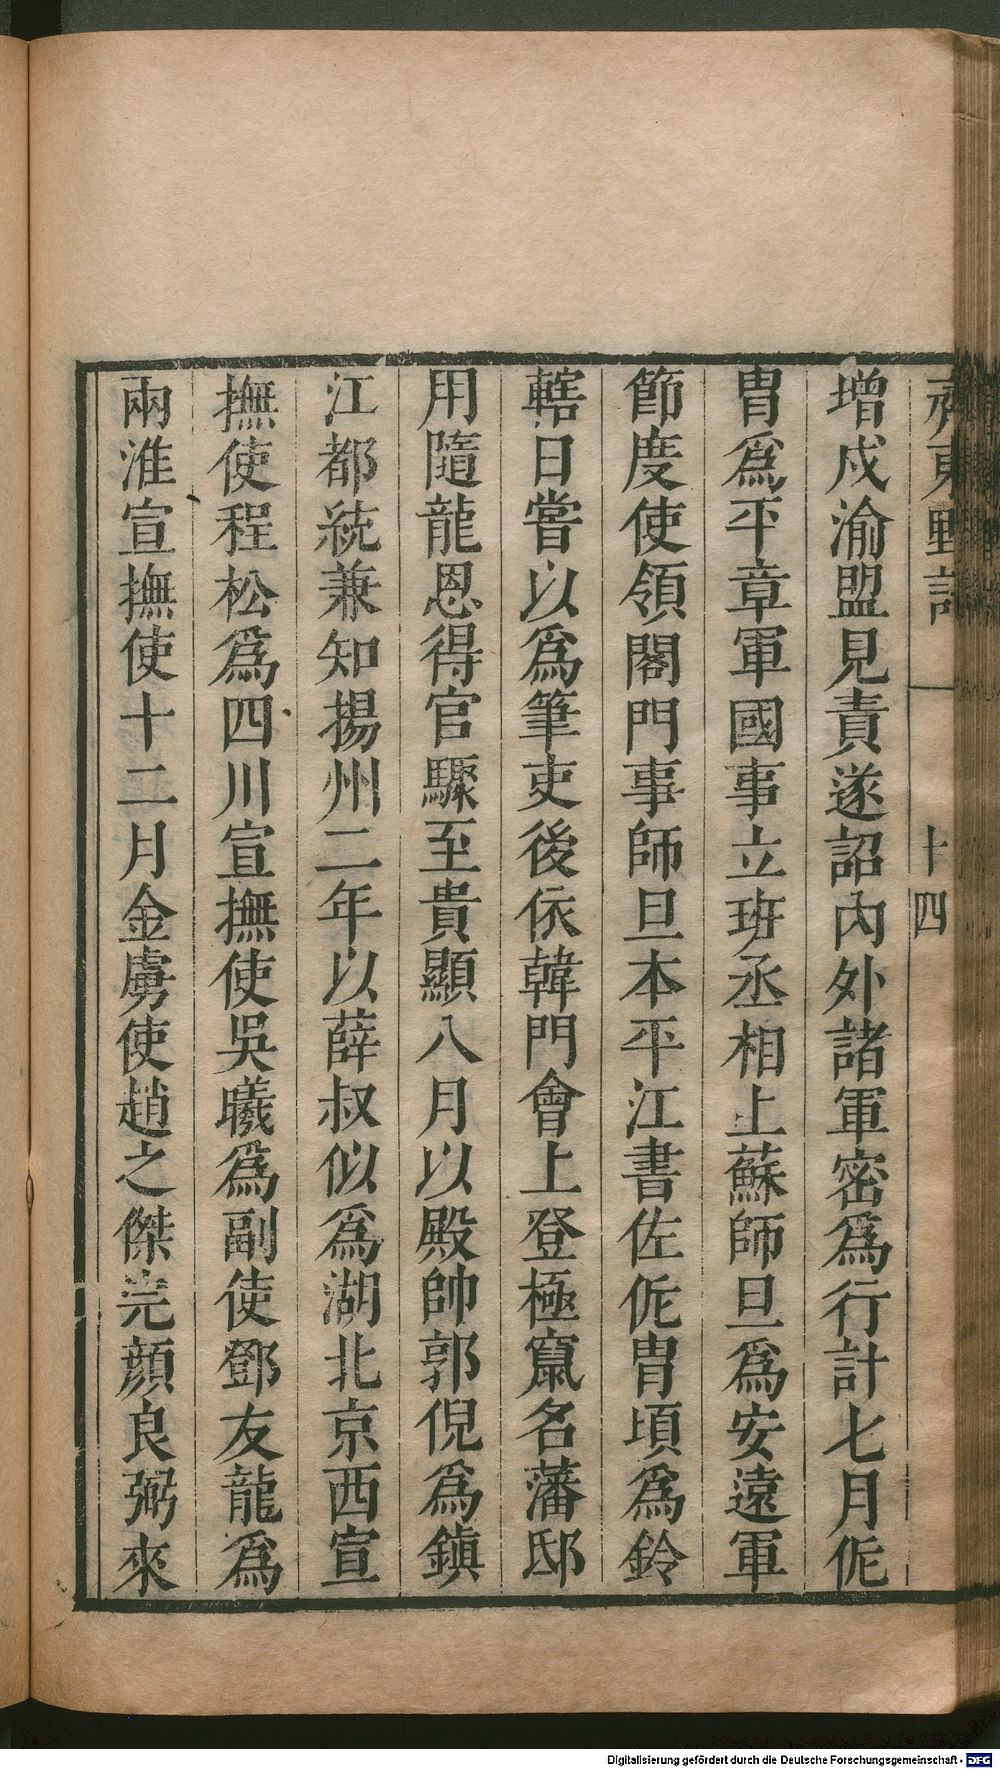 齊東野語
十四
增戍渝盟見責遂詔內外諸軍密爲行計七月侂
冑爲平章軍國事立班丞相上蘇師旦爲安遠軍
節度使領閣門事師旦本平江書佐侂冑頃爲鈐
轄日嘗以爲筆吏後依韓門會上登極竄名藩邸
用隨龍恩得官驟至貴顯八月以殿帥郭倪爲鎭
江都統兼知揚州二年以薛叔似爲湖北京西宣
撫使程松爲四川宣撫使吳曦爲副使鄧友龍爲
兩淮宣撫使十二月金虜使趙之傑完顔良弼來
Digitalisierung gefördert durch die Deutsche Forschungsgemeinschaft - DFG